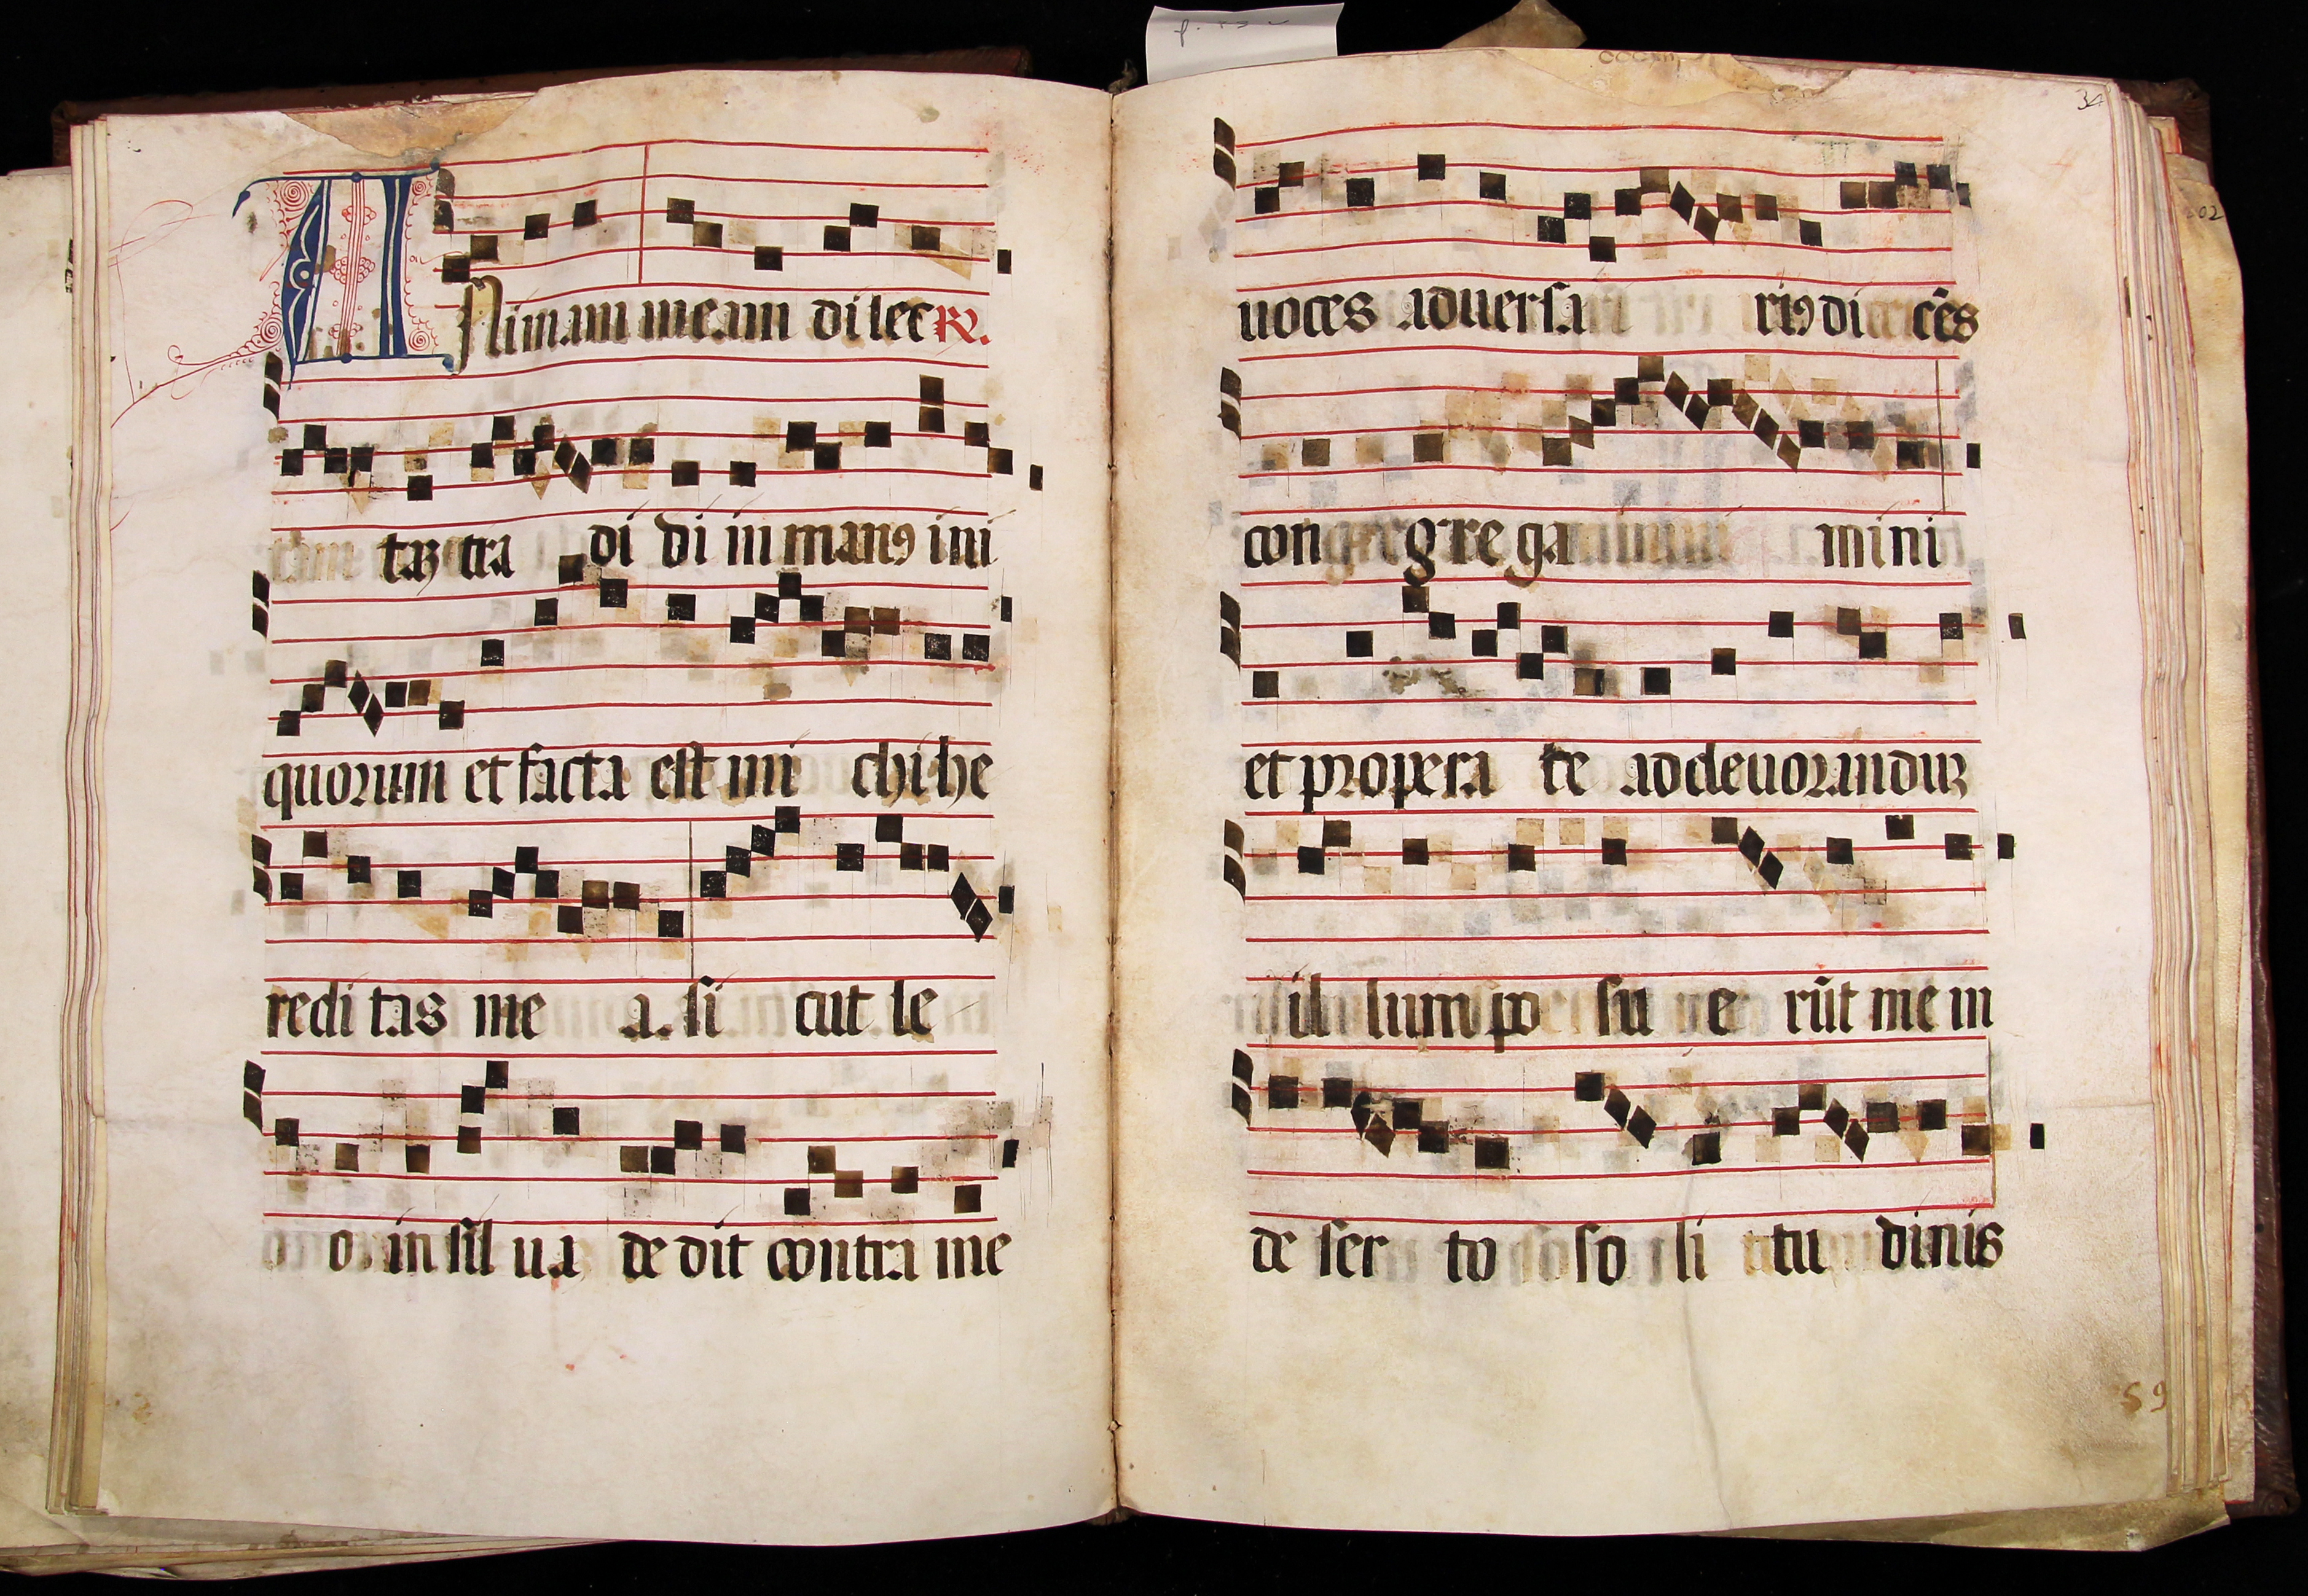 ANimam meam dilec R.
taȝ tra di di in manꝰ ini
quorum et facta est mi chi he
redi tas me a. si cut le
o. in sil ua de dit contra me
34
uoces aduersa riꝰ di cēs
congre ga mini
et propera te ad deuoranduȝ
il lum po su e rūt me in
de ser to so li tu dinis
59
02